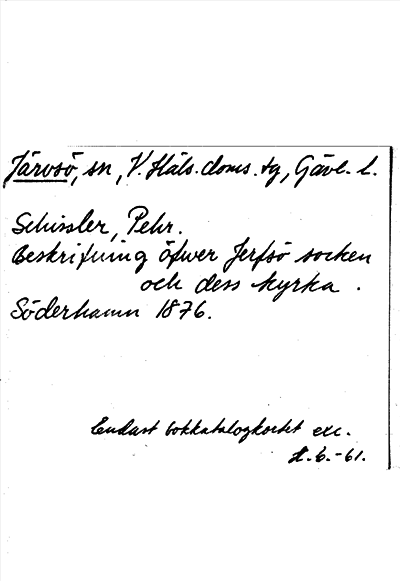 Järvsö, sn, V. Häls. doms. tg, Gävl. l.
Schissler, Pehr.
Beskrifning öfwer Jerfsö socken
och dess kyrka.
Söderhamn 1876.
Endast bokkatalogkortet exc.
6.-61.